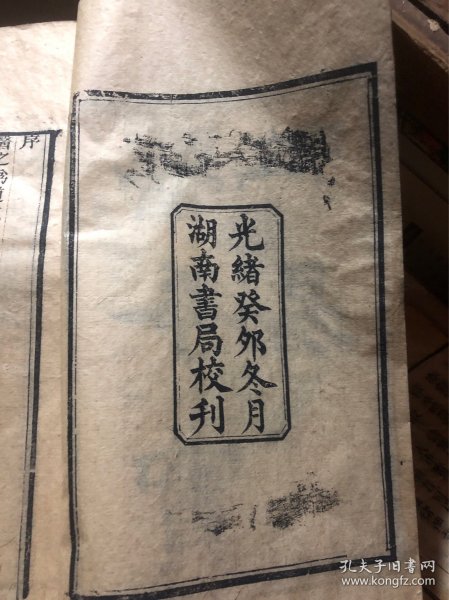 光緒癸夘冬月
湖南書局校刊
序
孔夫子旧书网
www.kongfz.com